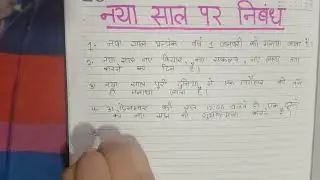 नया साल पर निबंध
1- नया साल प्रत्येक वर्ष 1 जनवरी को मनाया जाता है।
2- नया साल नए विचार, नए संकल्प, नए
करने का दिन है।
3- नया साल पूरी दुनिया में एक त्योहार की तरह
मनाया जाता है।
4- 31 दिसम्बर की रात 12:00 बजते ही एक दूसरे
को नया साल की शुभकामनाएं करते है।